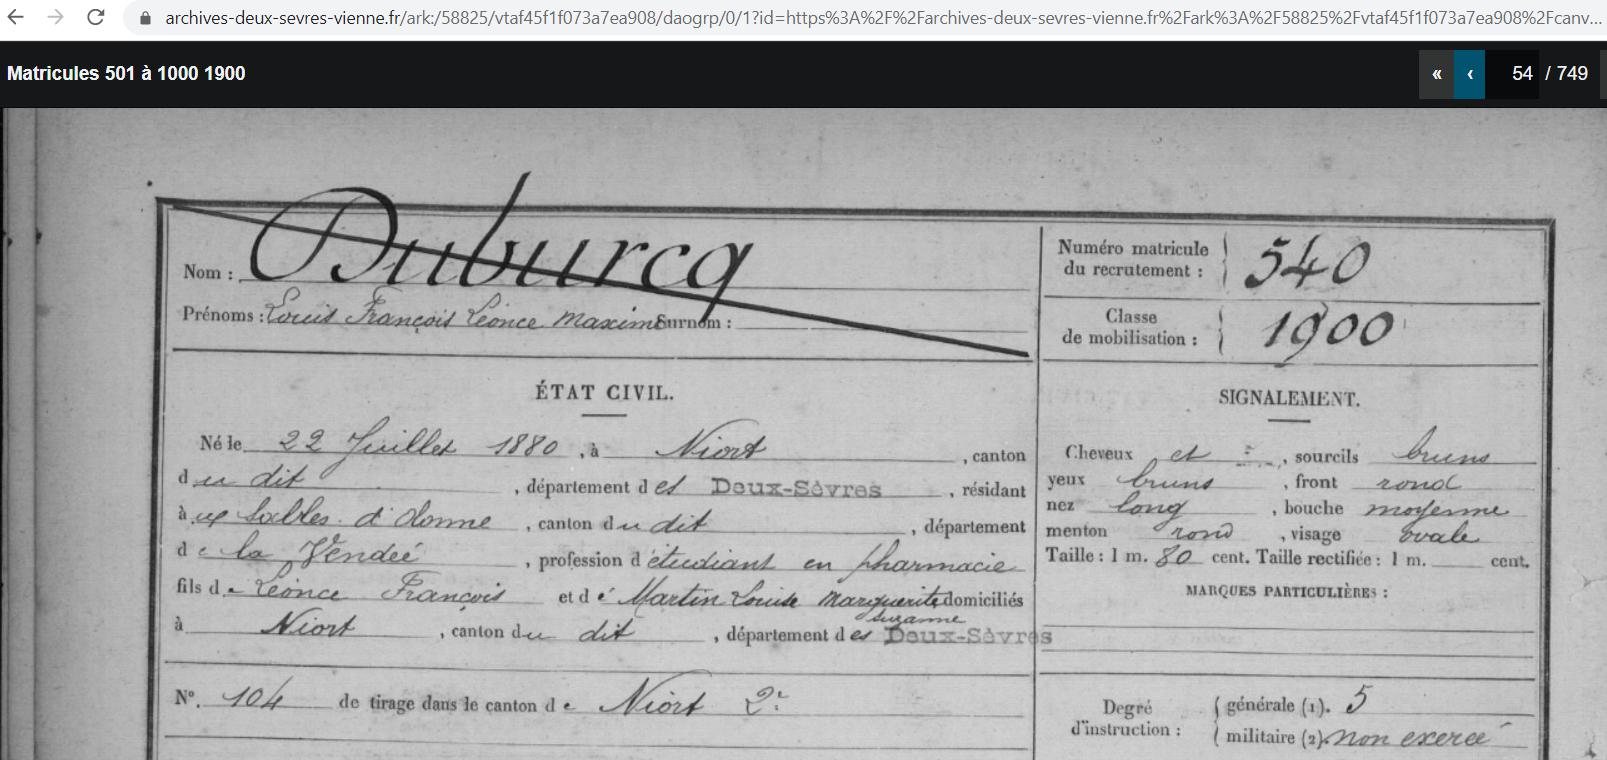 archives-deux-sevres-vienne.fr/ark:/58825/vtaf45f1f073a7ea908/daogrp/0/1?id=https%3A%2F%2Farchives-deux-sevres-vienne.fr%2Fark%3A%2F58825%2Fvtaf45f1f073a7ea908%2Fcanv...
Matricules 501 à 1000 1900 « ‹ 54 / 749
Nom : Duburcq
Prénoms : Louis François Léonce Maxime Surnom :
Numéro matricule du recrutement : 540
Classe de mobilisation : 1900
ÉTAT CIVIL.
Né le 22 Juillet 1880, à Niort, canton
du dit, département des Deux-Sèvres, résidant
à ux Sables d'Olonne, canton du dit, département
de la Vendée, profession d'étudiant en pharmacie
fils de Léonce François et de Martin Louise Marguerite Suzanne domiciliés
à Niort, canton du dit, département des Deux-Sèvres
N°. 104 de tirage dans le canton de Niort 2e
SIGNALEMENT.
Cheveux et, sourcils bruns
yeux bruns, front rond
nez long, bouche moyenne
menton rond, visage ovale
Taille : 1 m. 80 cent. Taille rectifiée : 1 m. cent.
MARQUES PARTICULIÈRES :
Degré d'instruction :
générale (1). 5
militaire (2). non exercé